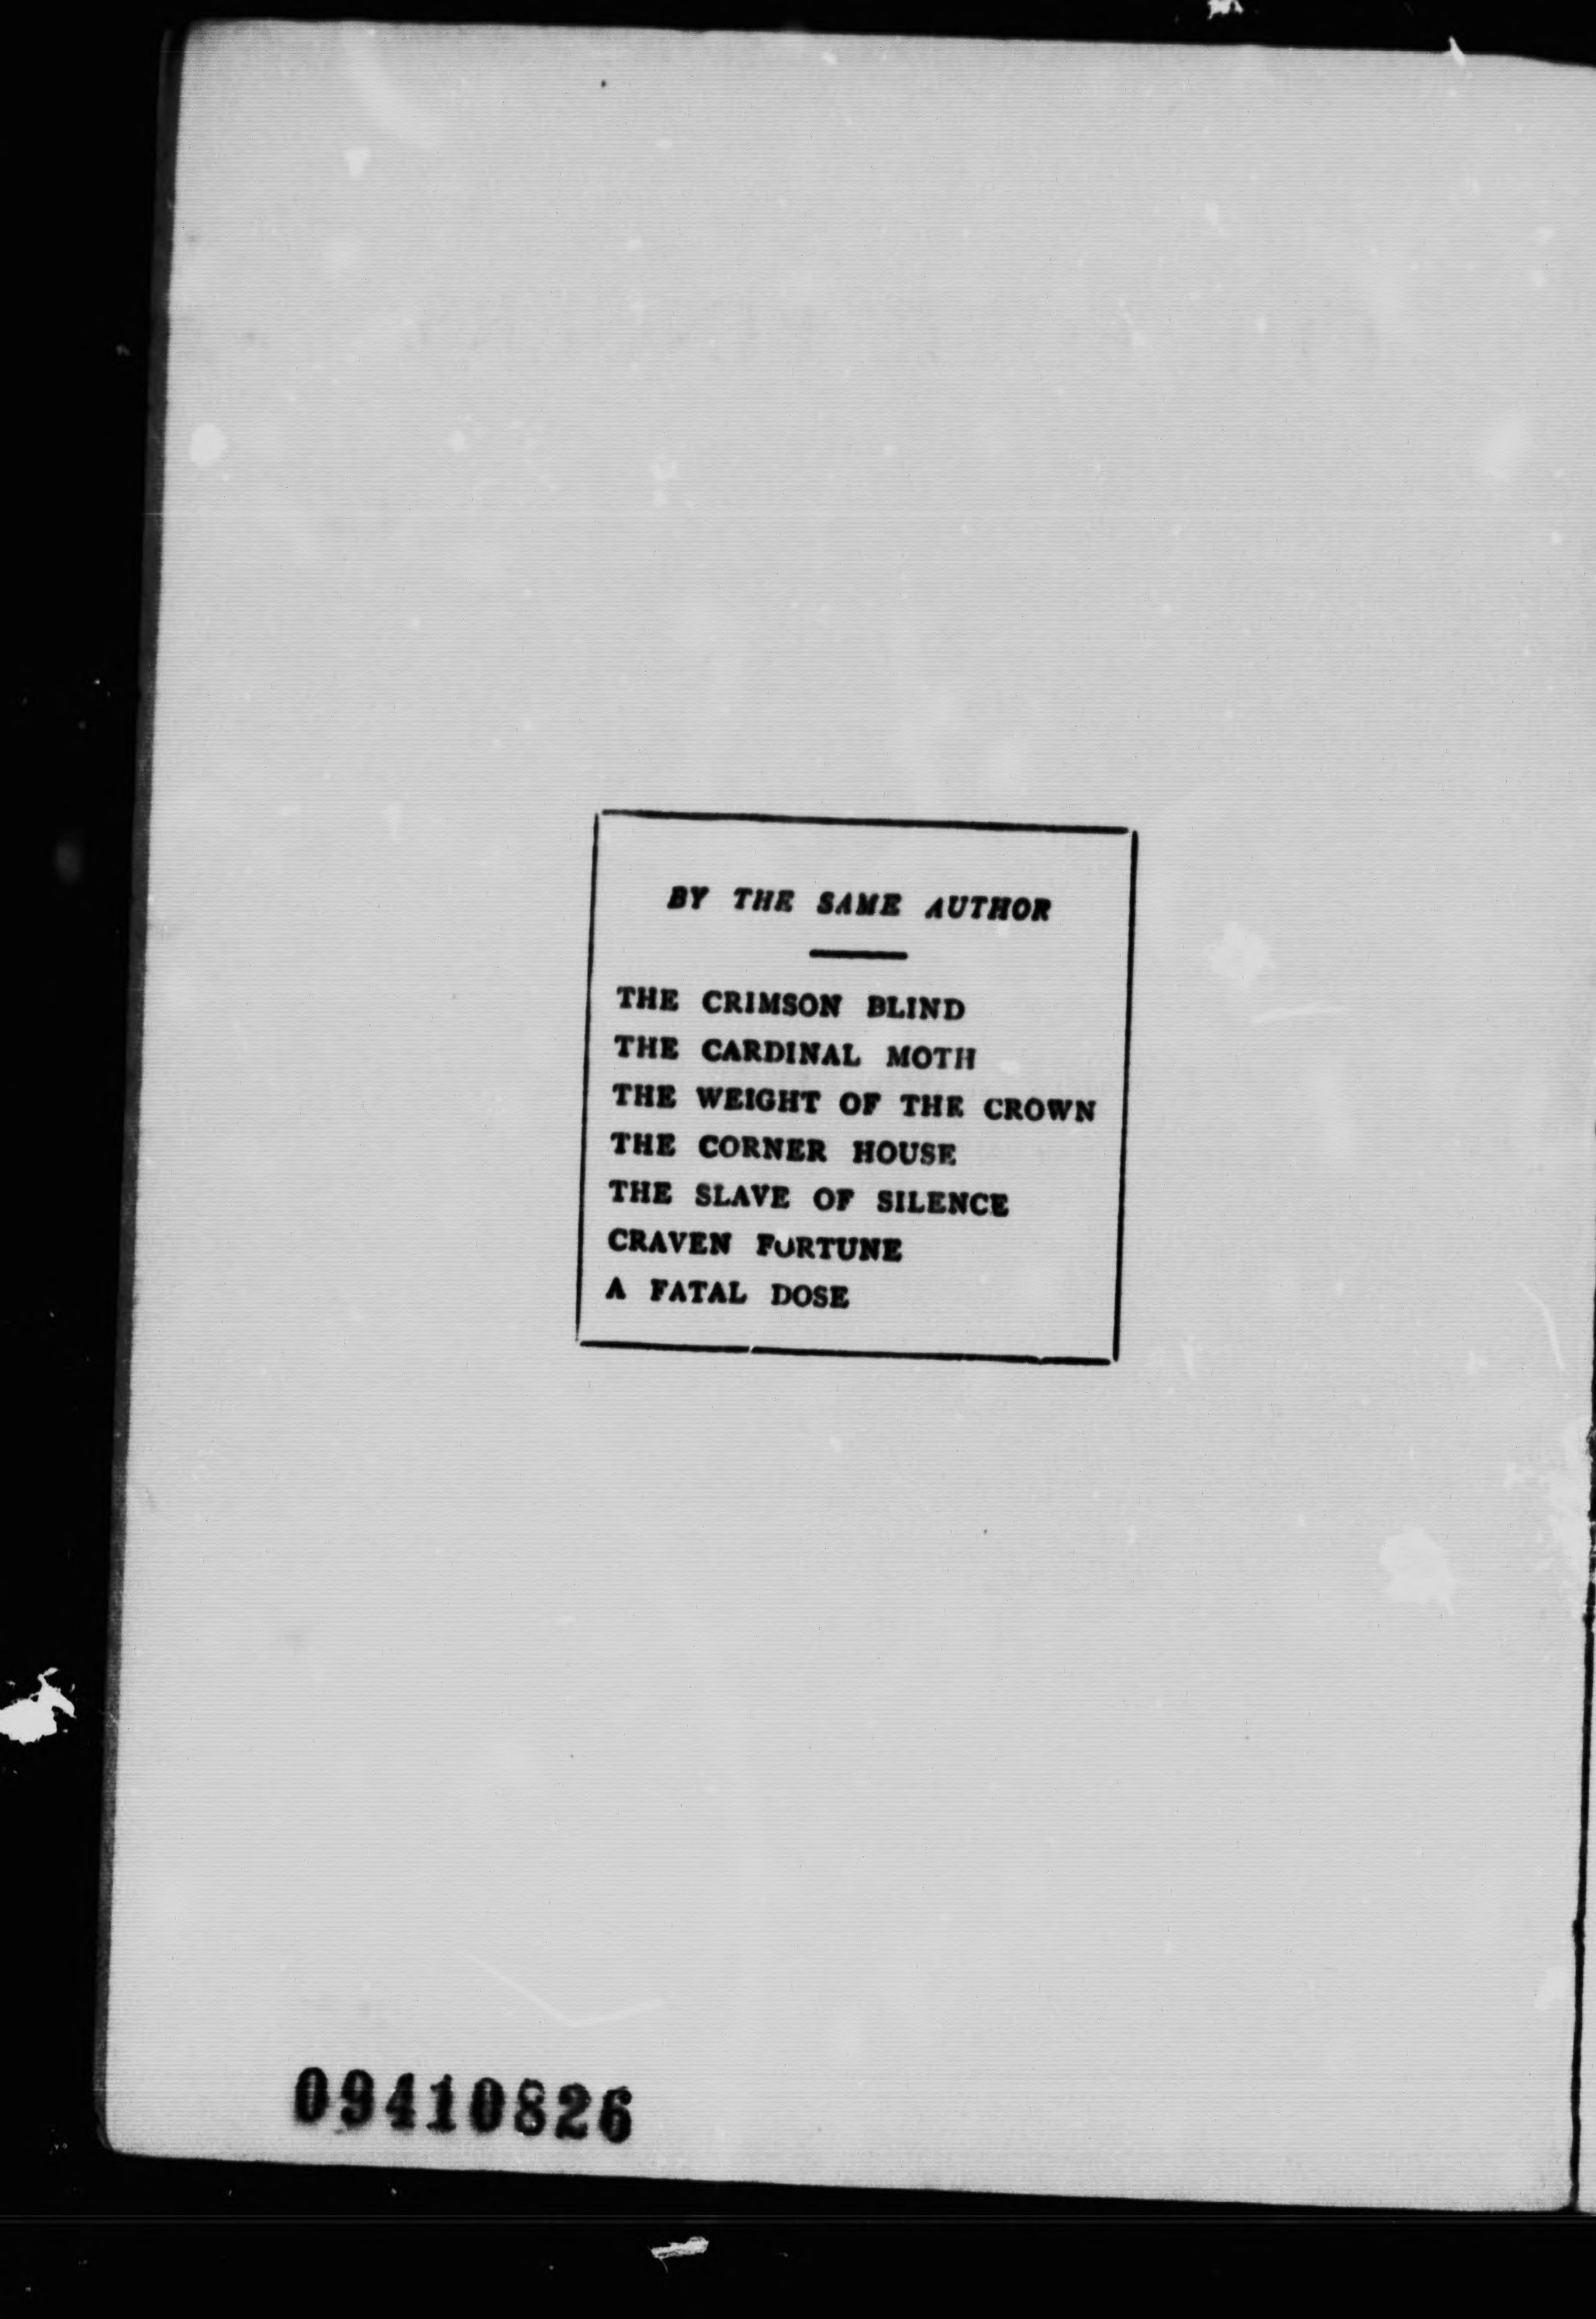 BY THE SAME AUTHOR
THE CRIMSON BLIND
THE CARDINAL MOTH
THE WEIGHT OF THE CROWN
THE CORNER HOUSE
THE SLAVE OF SILENCE
CRAVEN FORTUNE
A FATAL DOSE
09410826